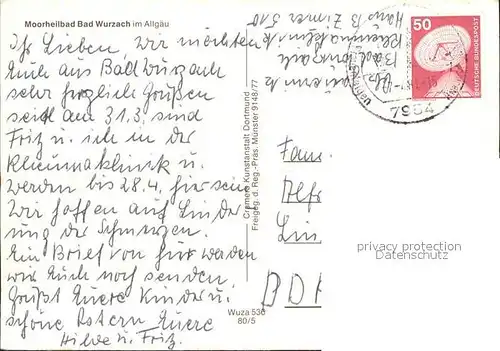 Moorheilbad Bad Wurzach im Allgäu
Ihr Lieben, wir möchten
Euch aus Bad Wurzach
sehr herzlich Grüßen
seit am 31.3. sind
Fritz u. ich in der
Rheumaklinik u.
werden bis 28.4. hier sein
Wir hoffen auf Linder
ung der Schmerzen.
Ein Brief von hir werden
wir Euch noch senden.
Grüßt Euere Kinder u.
schöne Ostern Euere
Hilde u. Fritz.
Rheumaklinik
Bad Wurzach
Haus B Zimer 510
Cramers Kunstanstalt Dortmund
Freigeg. d. Reg.-Präs. Münster 9148/77
Wuza 536
80/5
50
DEUTSCHE BUNDESPOST
7954
Fam
Alfr
Lin
DD
privacy protection
Datenschutz